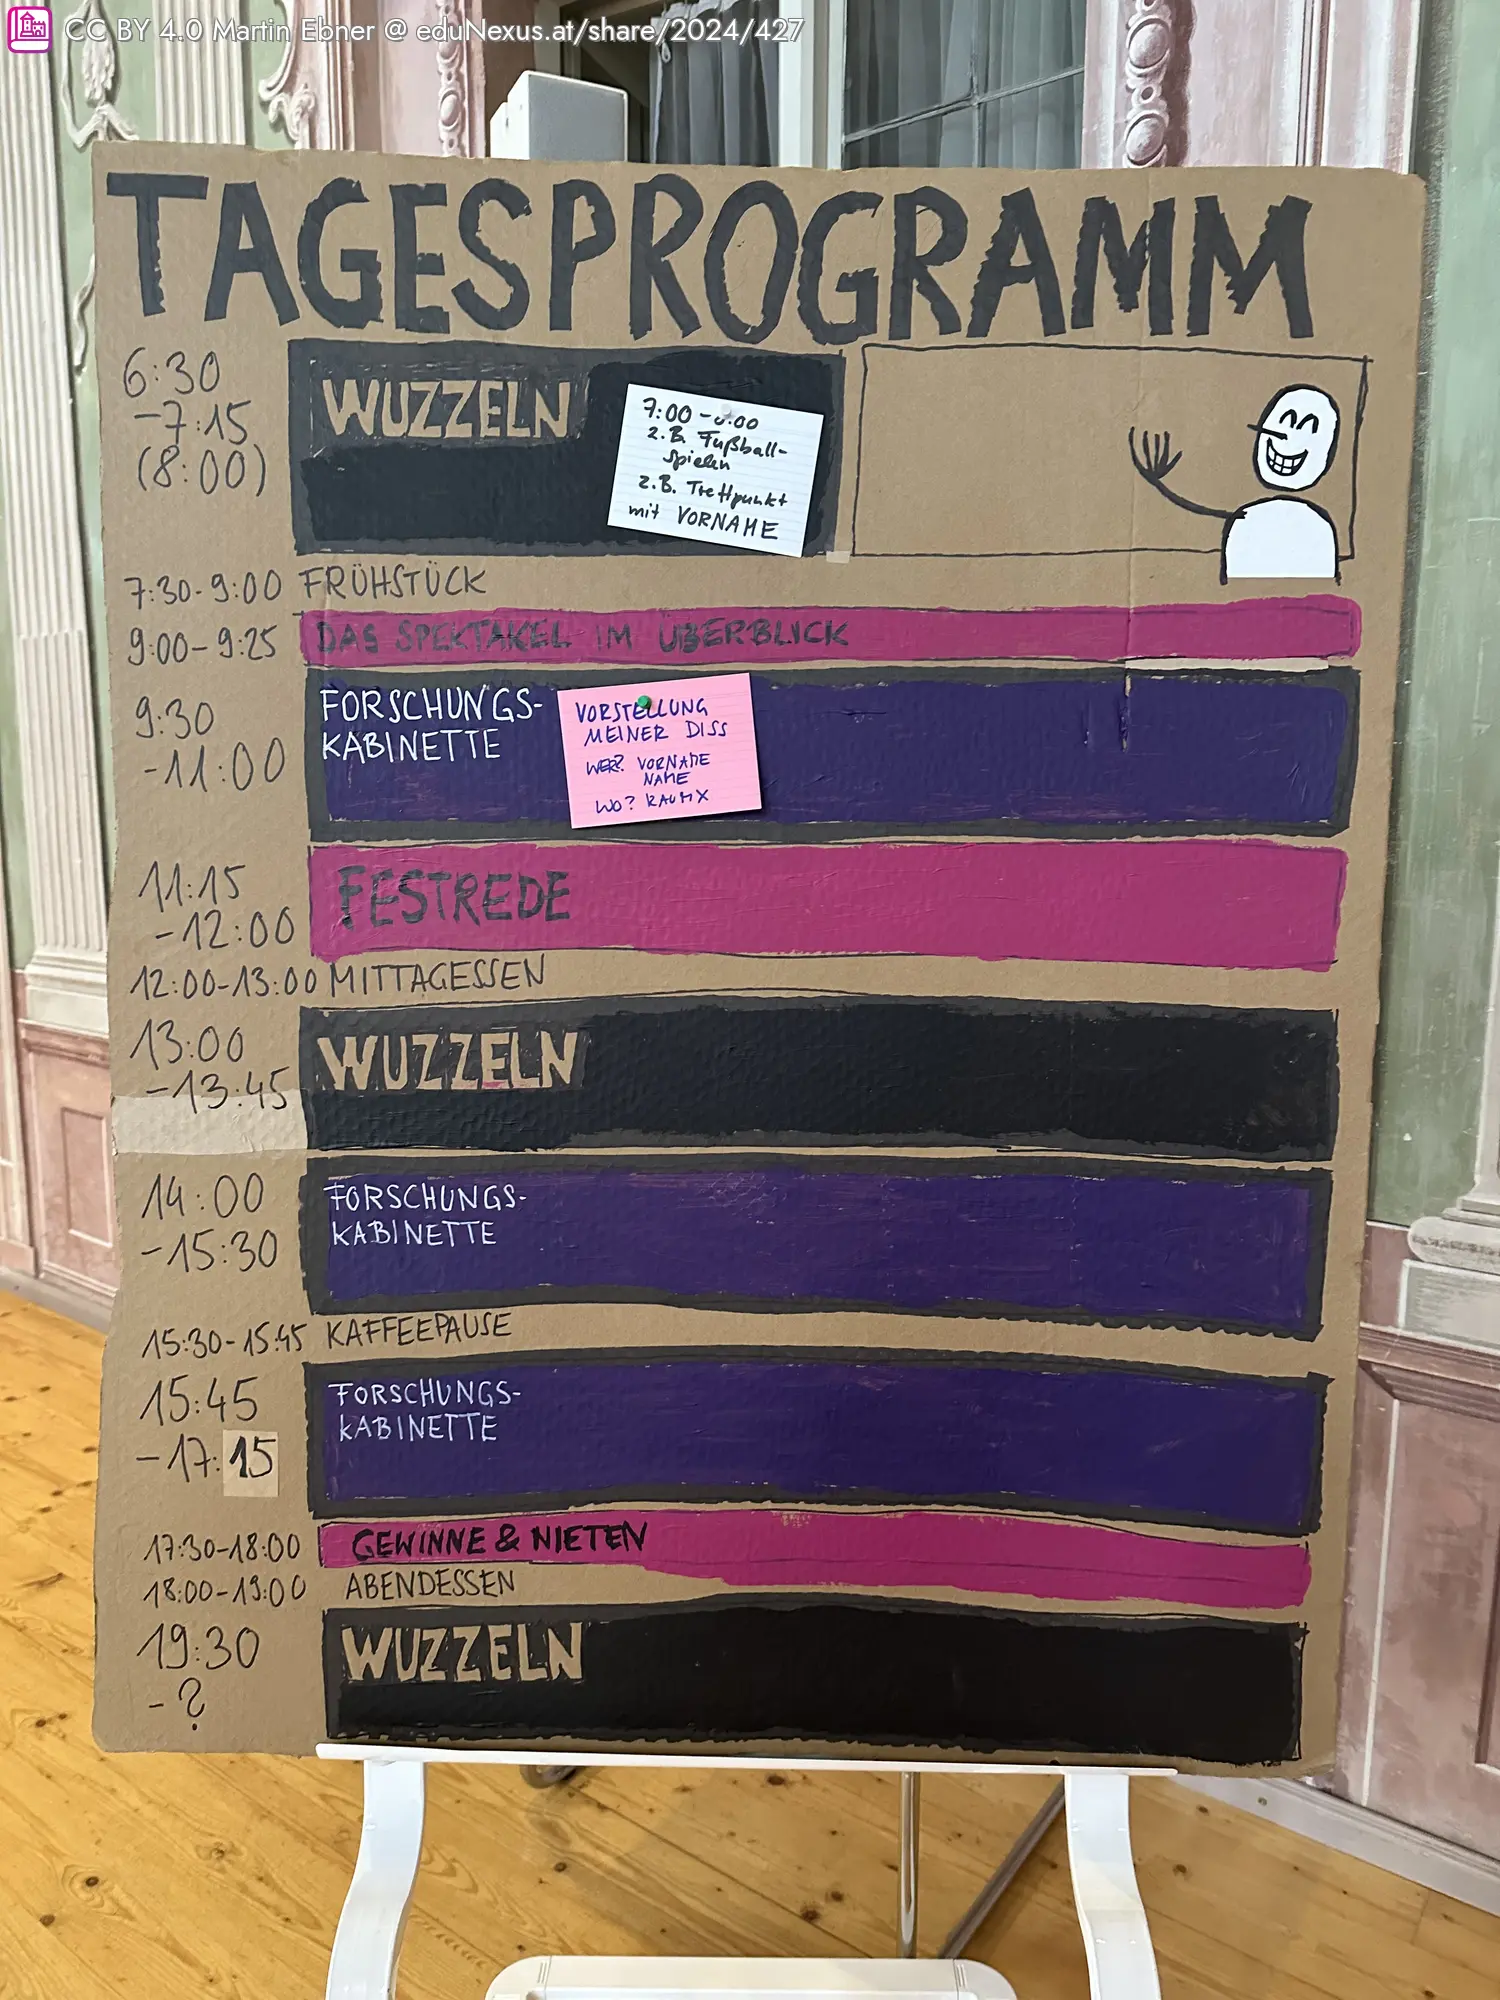 CC BY 4.0 Martin Ebner @ eduNexus.at/share/2024/427
TAGESPROGRAMM
6:30
-7:15
(8:00)
WUZZELN
7:00-8:00
z.B. Fußball-
spielen
z.B. Treffpunkt
mit VORNAME
7:30-9:00 FRÜHSTÜCK
9:00-9:25 DAS SPEKTAKEL IM ÜBERBLICK
9:30
-11:00
FORSCHUNGS-
KABINETTE
VORSTELLUNG
MEINER DISS
WER? VORNAME
NAME
WO? RAUM X
11:15
-12:00
FESTREDE
12:00-13:00 MITTAGESSEN
13:00
-13:45
WUZZELN
14:00
-15:30
FORSCHUNGS-
KABINETTE
15:30-15:45 KAFFEEPAUSE
15:45
-17:15
FORSCHUNGS-
KABINETTE
17:30-18:00 GEWINNE & NIETEN
18:00-19:00 ABENDESSEN
19:30
-?
WUZZELN